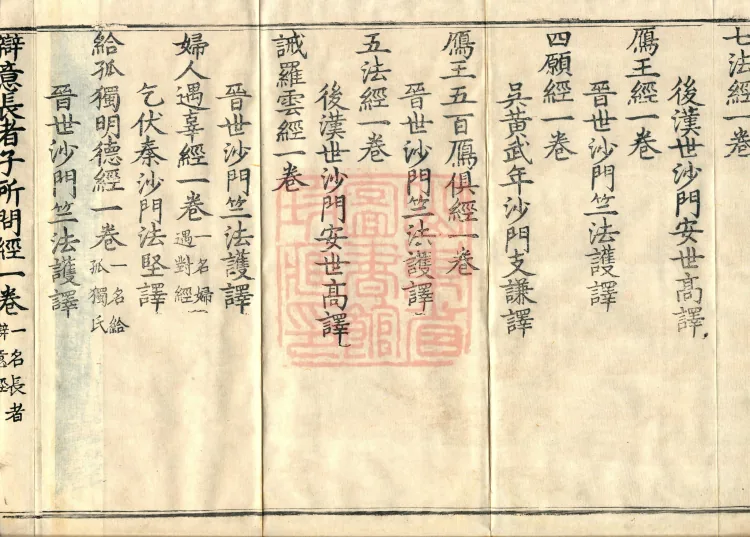 七法經一卷
後漢世沙門安世髙譯
鴈王經一卷
晉世沙門竺法護譯
四願經一卷
吳黃武年沙門支謙譯
鴈王五百鴈俱經一卷
晉世沙門竺法護譯
五法經一卷
後漢世沙門安世髙譯
誡羅雲經一卷
晉世沙門竺法護譯
婦人遇辜經一卷 一名婦遇對經
乞伏秦沙門法堅譯
給孤獨明德經一卷 一名給孤獨氏
晉世沙門竺法護譯
辯意長者子所問經一卷 一名長者辯意經